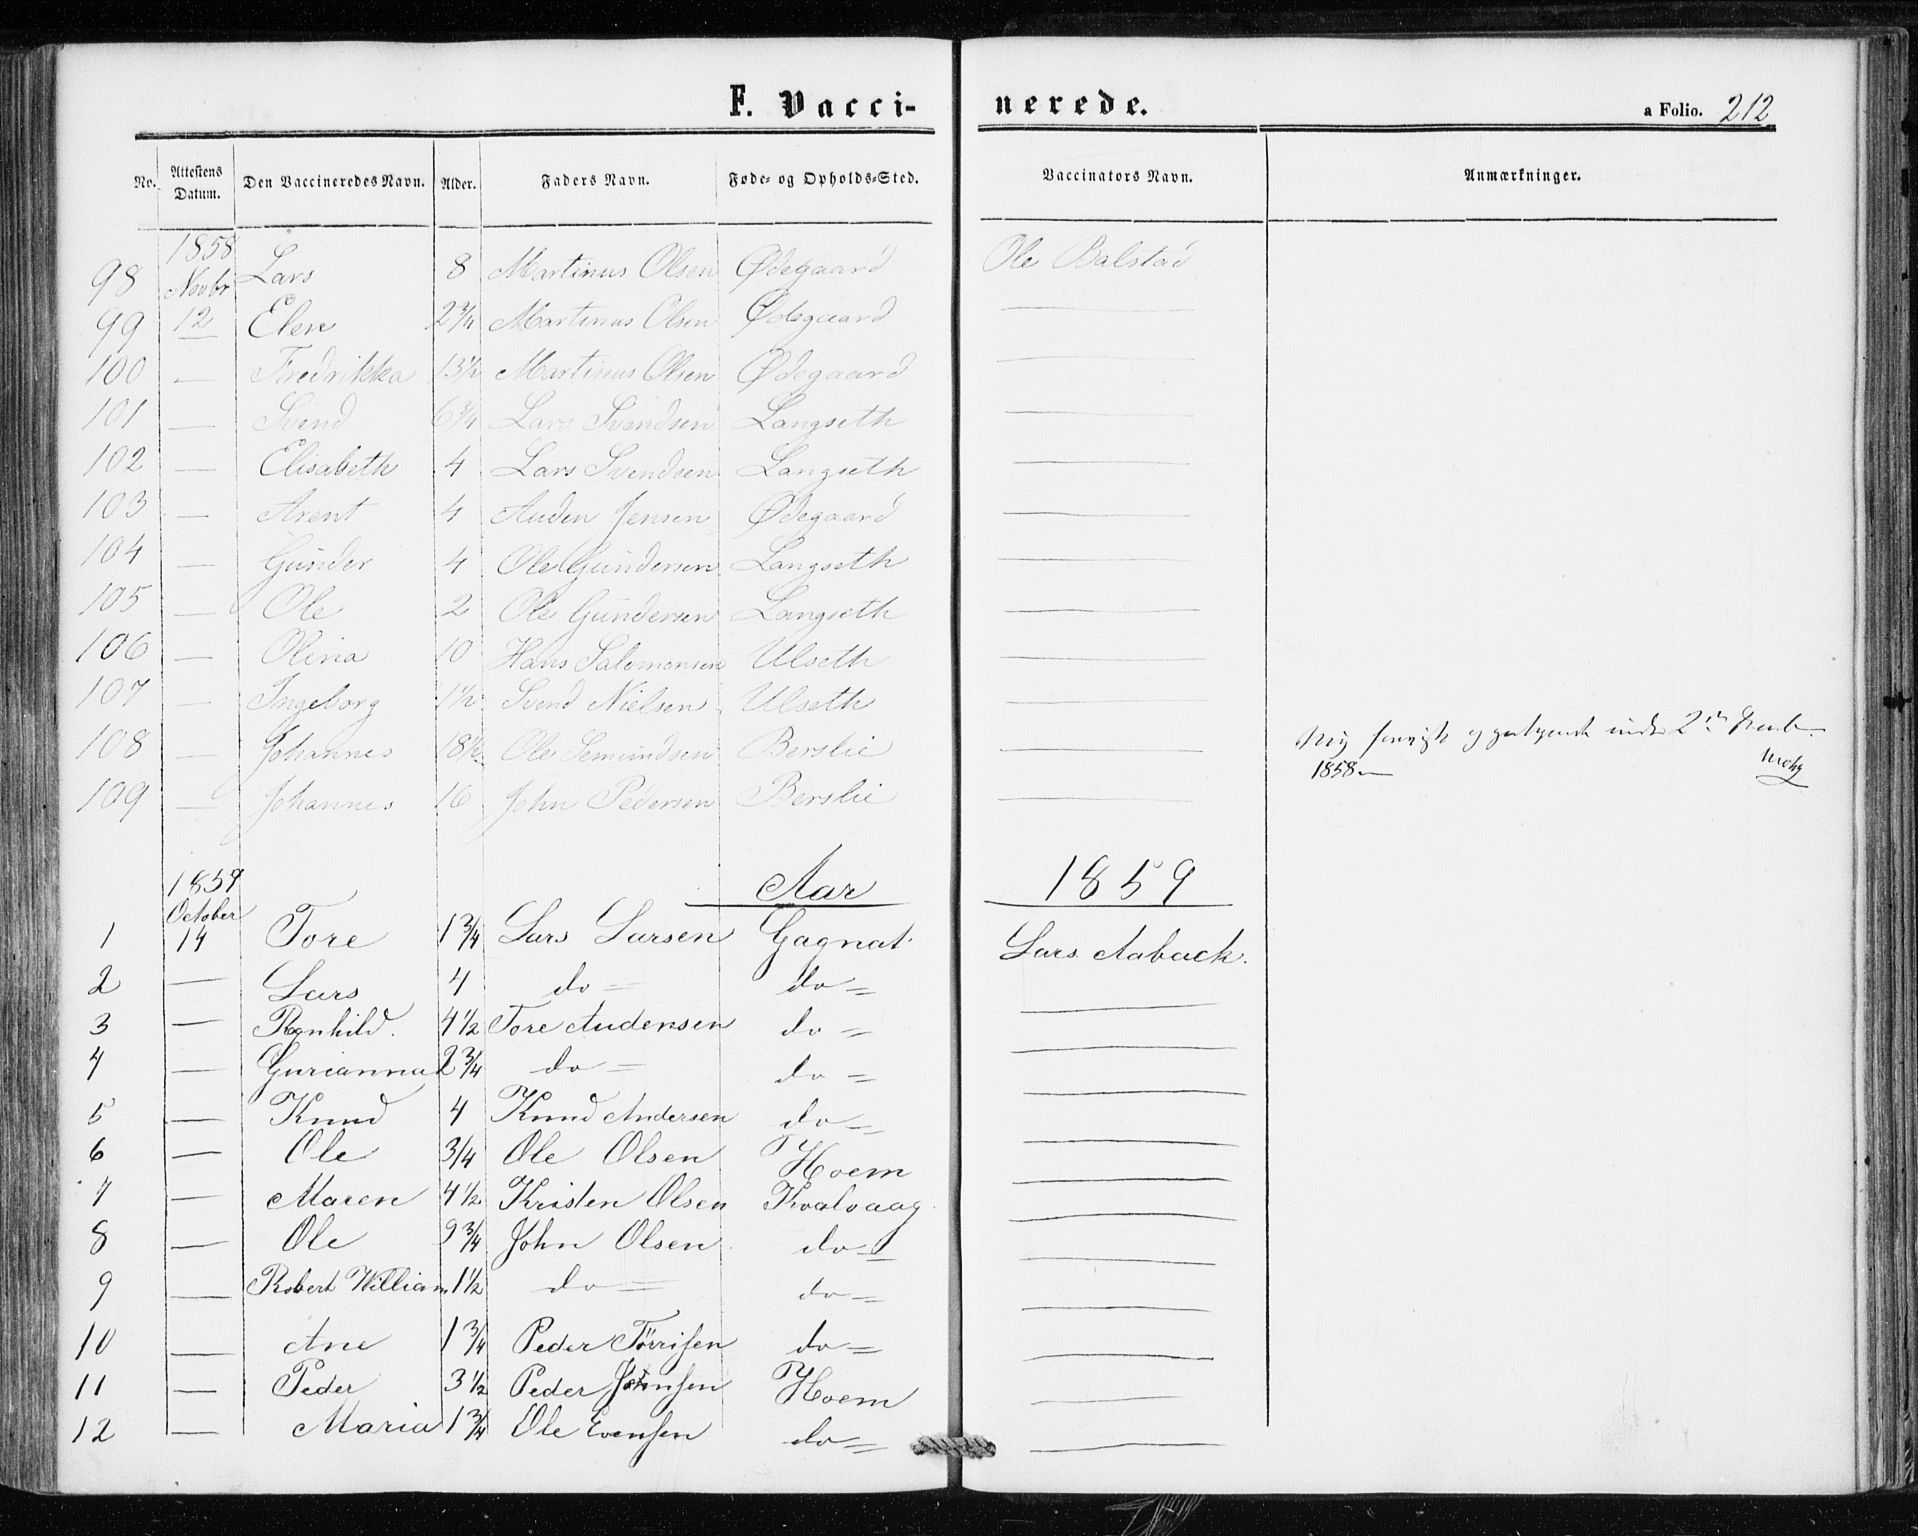 F. Vaccinerede.
a Folio. 212
No. Attestens Datum. Den Vaccineredes Navn. Alder. Faders Navn. Føde- og Opholds-Sted. Vaccinators Navn. Anmærkninger.
98 1858 Novbr Lars 8 Martinus Olsen Ødegaard Ole Balstad
99 12 Elen 2 3/4 Martinus Olsen Ødegaard —
100 — Fredrikka 13 1/2 Martinus Olsen Ødegaard —
101 — Svend 6 3/4 Lars Svendsen Langseth —
102 — Elisabeth 4 Lars Svendsen Langseth —
103 — Arent 4 Auden Jensen Ødegaard —
104 — Gunder 4 Ole Gundersen Langseth —
105 — Ole 2 Ole Gundersen Langseth —
106 — Olina 10 Hans Salomonsen Ulseth —
107 — Ingeborg 1 1/2 Svend Nielsen Ulseth —
108 — Johannes 18 1/2 Ole Semundsen Berslie — 2
1858
109 — Johannes 16 John Pedersen Berslie —
Aar 1859
1 1859 October 14 Tore 1 3/4 Lars Larsen Gagnat Lars Aaback.
2 — Lars 4 do = do = —
3 — Ragnhild. 4 1/2 Tore Audensen do = —
4 — Gurianna 2 3/4 do = do = —
5 — Knud 4 Knud Andersen do = —
6 — Ole 3/4 Ole Olsen Hoem —
7 — Maren 4 1/2 Kristen Olsen Kvalvaag —
8 — Ole 9 3/4 John Olsen do = —
9 — Robert William 1 1/2 do = do = —
10 — Ane 1 3/4 Peder Törrisen do = —
11 — Peder 3 1/2 Peder Johnsen Hoem —
12 — Maria 1 3/4 Ole Evensen do = —